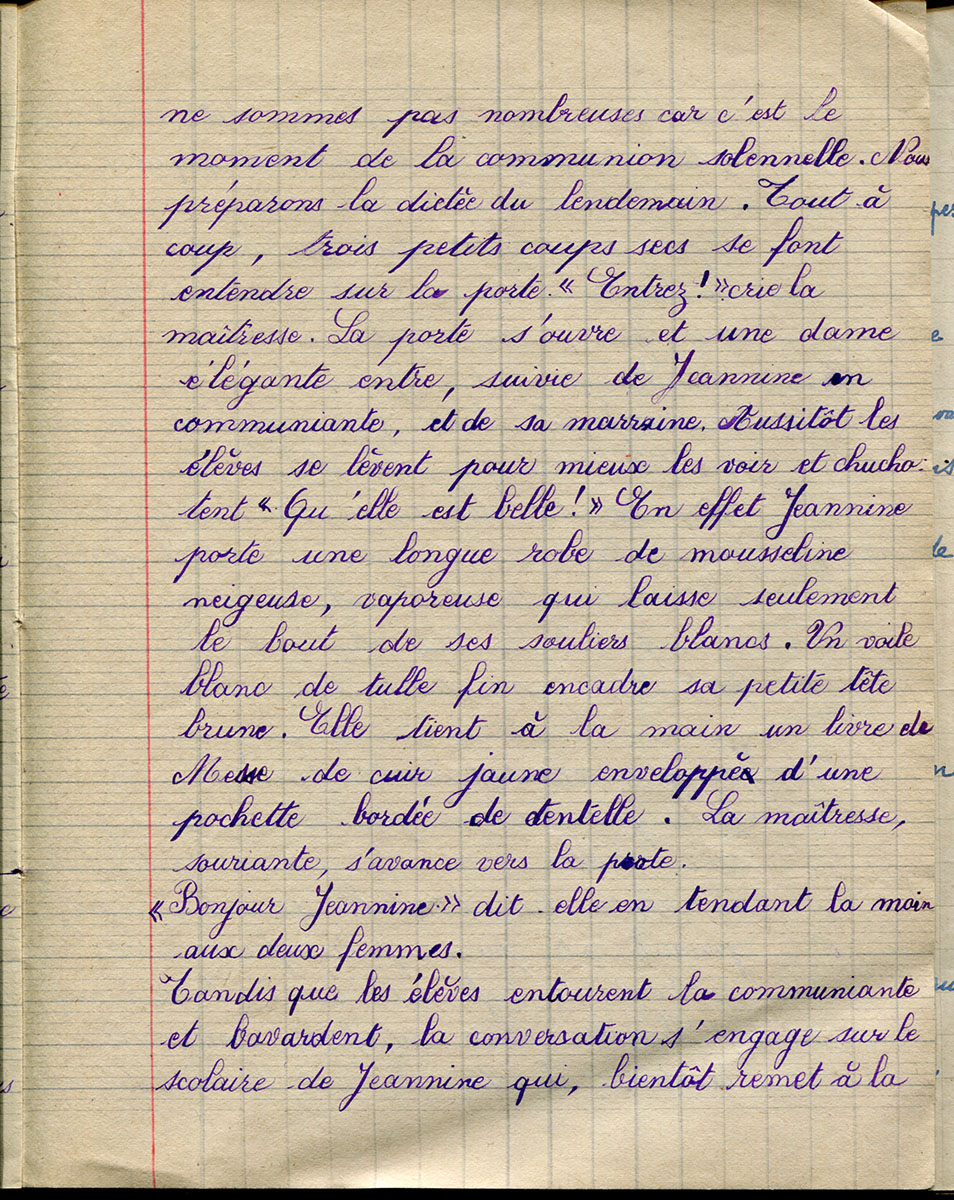 ne sommes pas nombreuses car c'est le
moment de la communion solennelle. Nous
préparons la dictée du lendemain. Tout à
coup, trois petits coups secs se font
entendre sur la porte. « Entrez! » crie la
maîtresse. La porte s'ouvre et une dame
élégante entre, suivie de Jeannine en
communiante, et de sa marraine. Aussitôt les
élèves se lèvent pour mieux les voir et chucho-
tent « Qu'elle est belle! » En effet Jeannine
porte une longue robe de mousseline
neigeuse, vaporeuse qui laisse seulement
le bout de ses souliers blancs. Un voile
blanc de tulle fin encadre sa petite tête
brune. Elle tient à la main un livre de
Messe de cuir jaune enveloppée d'une
pochette bordée de dentelle. La maîtresse,
souriante, s'avance vers la porte.
« Bonjour Jeannine » dit elle en tendant la main
aux deux femmes.
Tandis que les élèves entourent la communiante
et bavardent, la conversation s'engage sur le
scolaire de Jeannine qui, bientôt remet à la